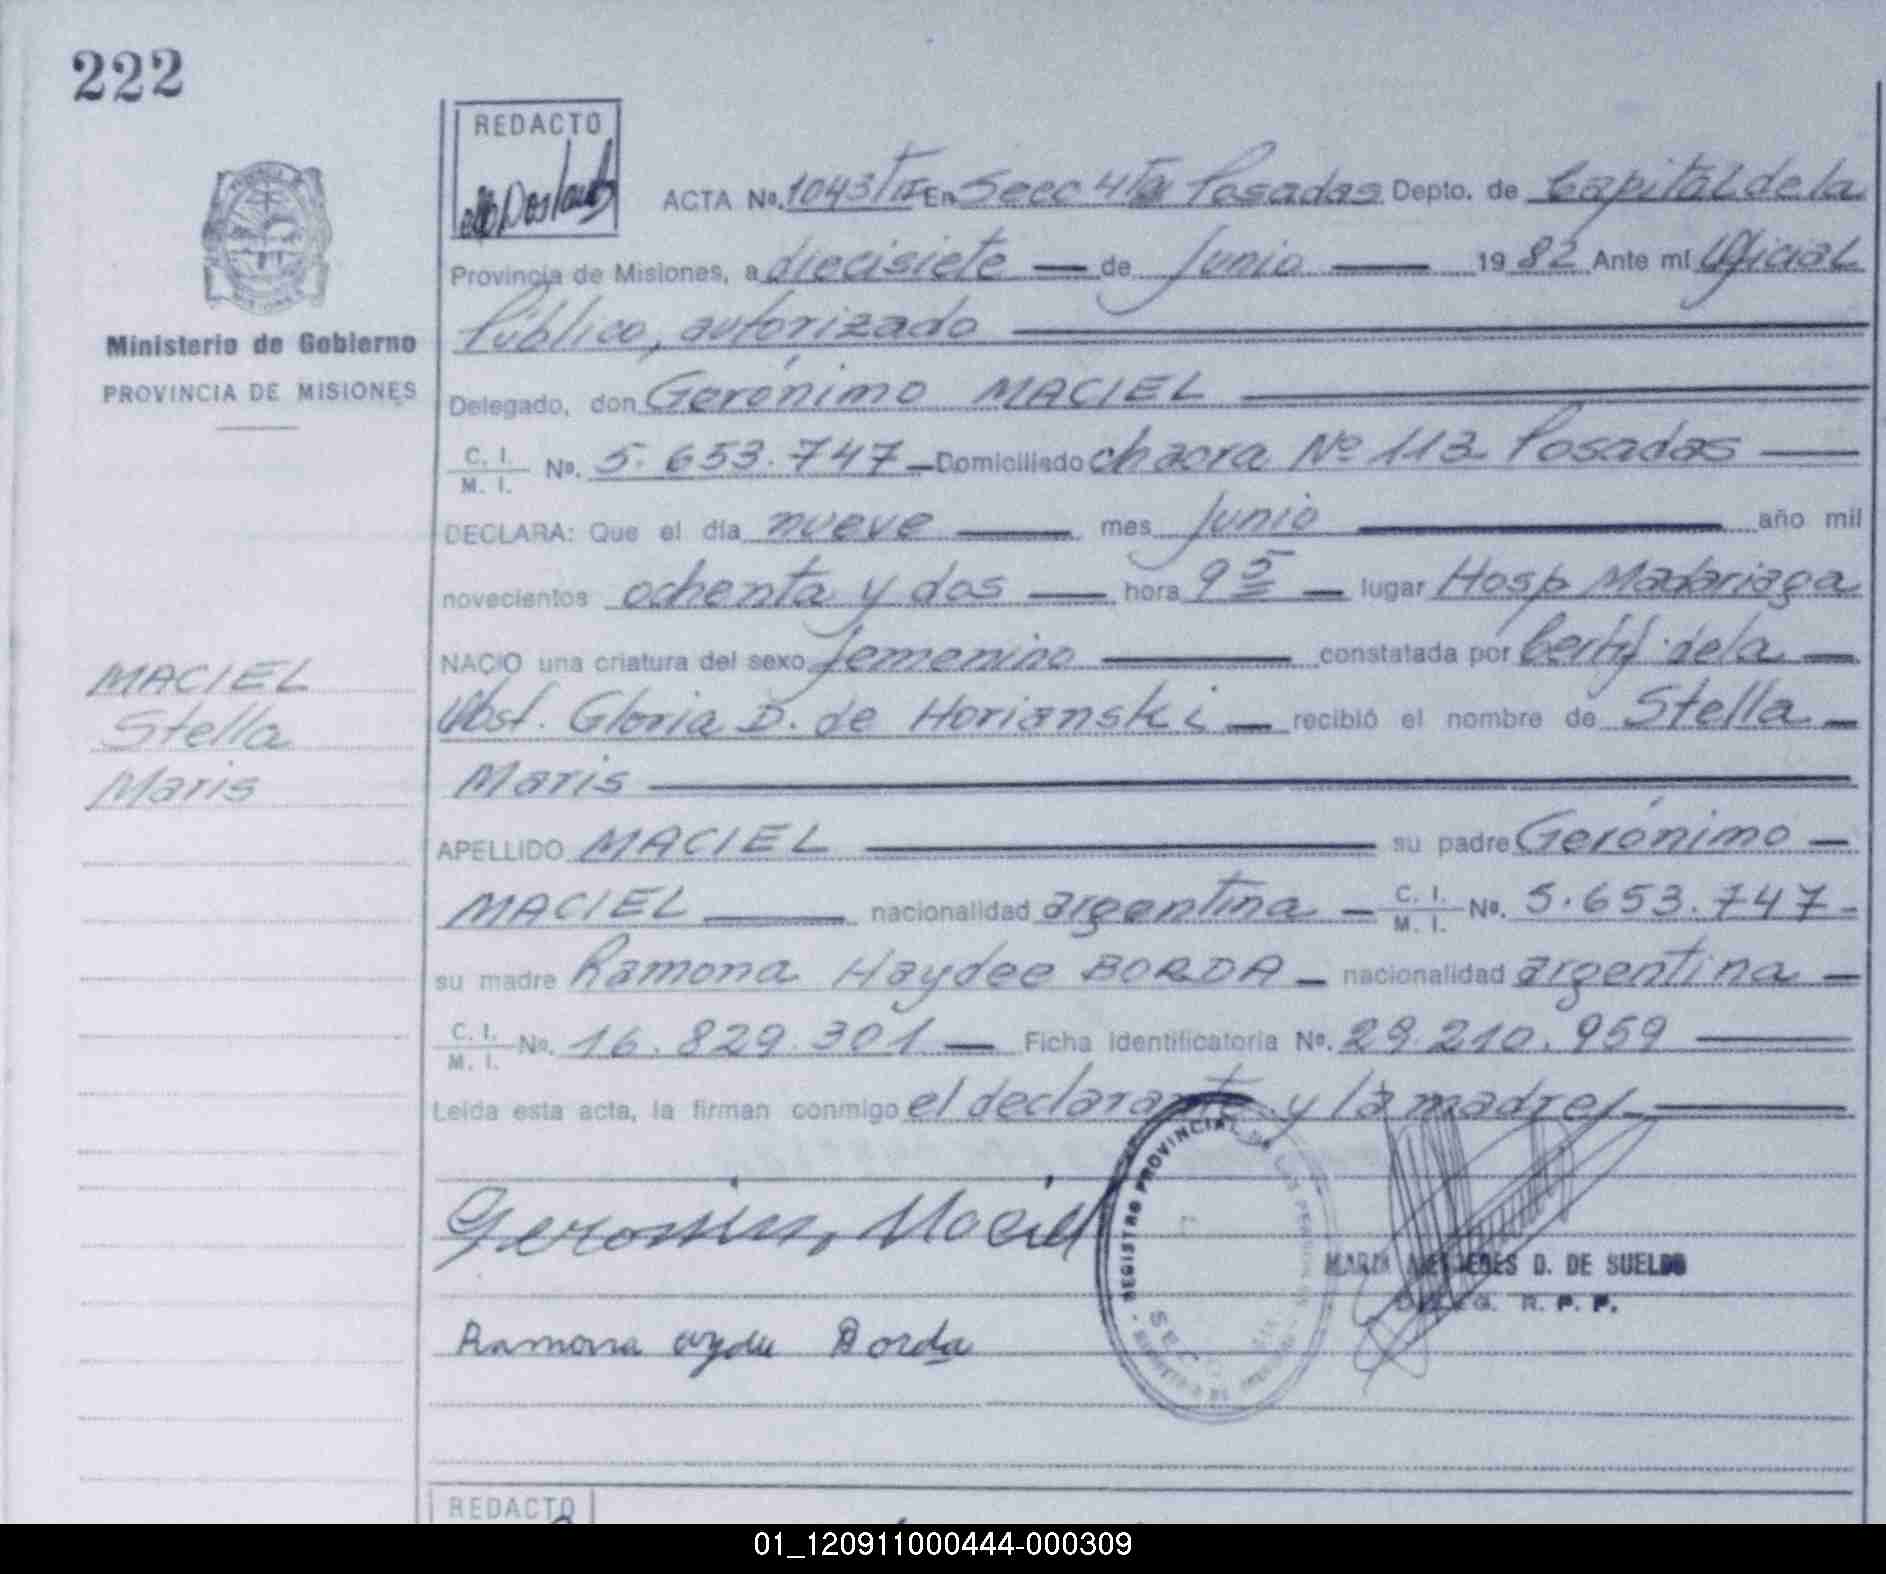 222
REDACTO
ACTA No. 1043 T II En Secc 4ta Posadas Depto. de Capital de la
Provincia de Misiones, a diecisiete — de Junio — 19 82 Ante mi Oficial
Público, autorizado
Ministerio de Gobierno
PROVINCIA DE MISIONES
Delegado, don Gerónimo MACIEL
C. I.
M. I. No. 5.653.747 — Domiciliado chacra Nº 113 Posadas —
DECLARA: Que el día nueve — mes Junio — año mil
novecientos ochenta y dos — hora 9 5 — lugar Hosp Madariaga
NACIO una criatura del sexo femenino — constatada por Certif. de la —
Obst. Gloria D. de Horianski — recibió el nombre de Stella —
Maris
MACIEL
Stella
Maris
APELLIDO MACIEL — su padre Gerónimo —
MACIEL — nacionalidad argentina — C. I.
M. I. No. 5.653.747 -
su madre Ramona Haydee BORDA — nacionalidad argentina —
C. I.
M. I. No. 16.829.301 — Ficha Identificatoria No. 29.210.959 —
Leída esta acta, la firman conmigo el declarante y la madre —
Geronimo Maciel
REGISTRO PROVINCIAL DE LAS PERSONAS
SECC
MARIA MERCEDES D. DE SUELDO
DELEG. R. P. P.
Ramona aydee Borda
REDACTO
01_120911000444-000309